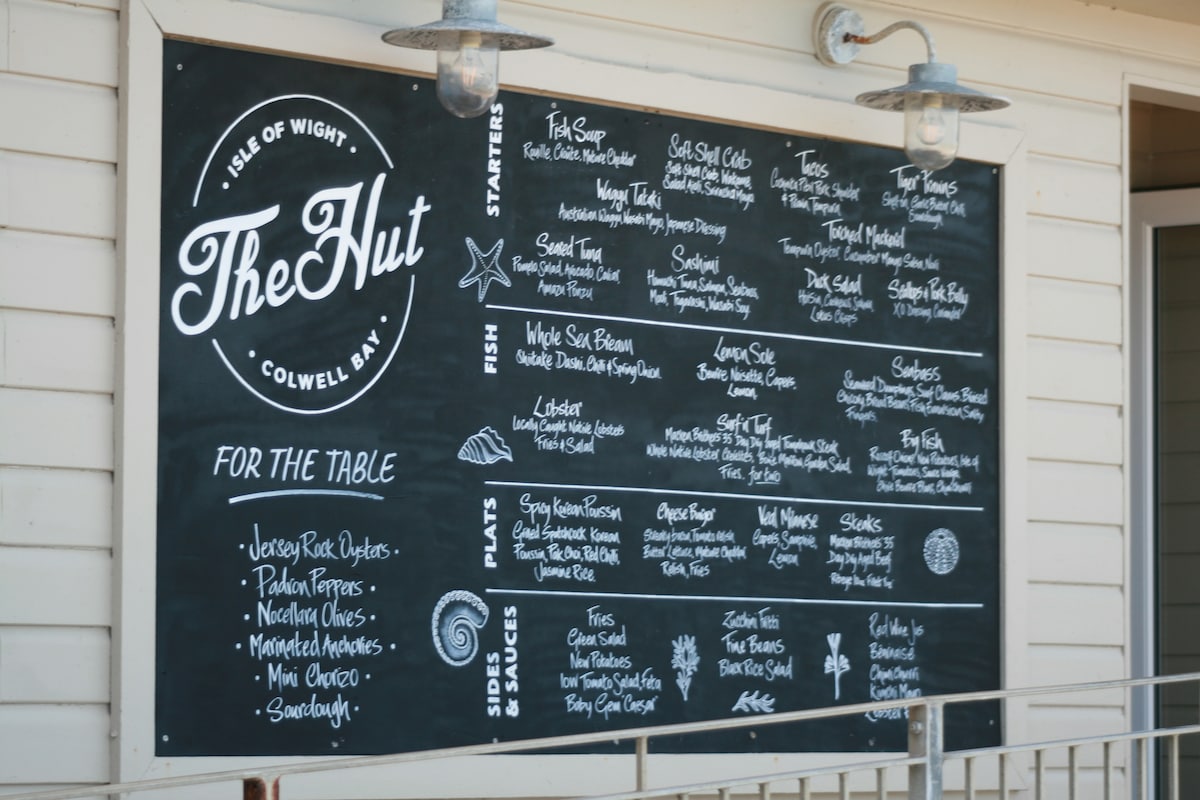 ISLE OF WIGHT
The Hut
COLWELL BAY
FOR THE TABLE
Jersey Rock Oysters
Padron Peppers
Nocellara Olives
Marinated Anchovies
Mini Chorizo
Sourdough
STARTERS
Fish Soup
Rouille, Mature Cheddar
Soft Shell Crab
Soft Shell Crab, Wakame,
Salad, Aioli, Sriracha Mayo
Tacos
Pork Shoulder
& Prawn Tempura
Tiger Prawns
Wagyu Tataki
Australian Wagyu, Wasabi Mayo, Japanese Dressing
Torched Mackerel
Tempura Oyster, Cucumber, Mango Salsa, Nori
Seared Tuna
Pomelo Salad, Avocado, Caviar,
Amazu Ponzu
Sashimi
Hamachi, Tuna, Salmon, Seabass,
Togarashi, Wasabi, Soy.
Duck Salad
Hoisin, Salad,
Lotus Crisps
Scallops & Pork Belly
XO Dressing, Coriander
FISH
Whole Sea Bream
Shiitake Dashi, Chilli & Spring Onion.
Lemon Sole
Beurre Noisette, Capers,
Lemon.
Seabass
Seaweed Dumplings, Surf Clams, Braised
Lobster
Locally Caught Native Lobster
Fries & Salad
Surf 'n' Turf
35 Day Dry Aged Tomahawk Steak
Whole Native Lobster, Garden Salad,
Fries. for two
Big Fish
New Potatoes, Isle of
Wight Tomatoes, Sauce
PLATS
Spicy Korean Poussin
Grilled Spatchcock Korean
Poussin, Pak Choi, Red Chilli,
Jasmine Rice.
Cheese Burger
Streaky Bacon, Tomato Relish,
Butter Lettuce, Mature Cheddar
Relish, Fries
Veal Milanese
Capers, Samphire,
Lemon
Steaks
35
Day Dry Aged Beef
SIDES
& SAUCES
Fries
Green Salad
New Potatoes
IOW Tomato Salad, Feta
Baby Gem Caesar
Zucchini Fritti
Fine Beans
Black Rice Salad
Red Wine Jus
Béarnaise
Chimichurri
Kimchi Mayo